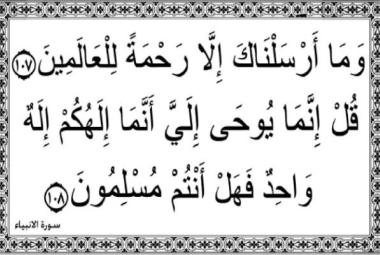 وَمَا أَرْسَلْنَاكَ إِلَّا رَحْمَةً لِلْعَالَمِينَ ١٠٧
قُلْ إِنَّمَا يُوحَى إِلَيَّ أَنَّمَا إِلَهُكُمْ إِلَهٌ
وَاحِدٌ فَهَلْ أَنْتُمْ مُسْلِمُونَ ١٠٨
سورة الانبياء